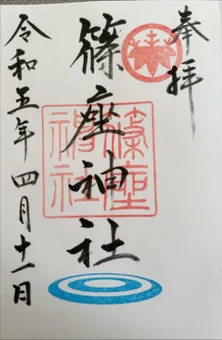 奉拝
篠座神社
令和五年四月十一日
篠座
神社